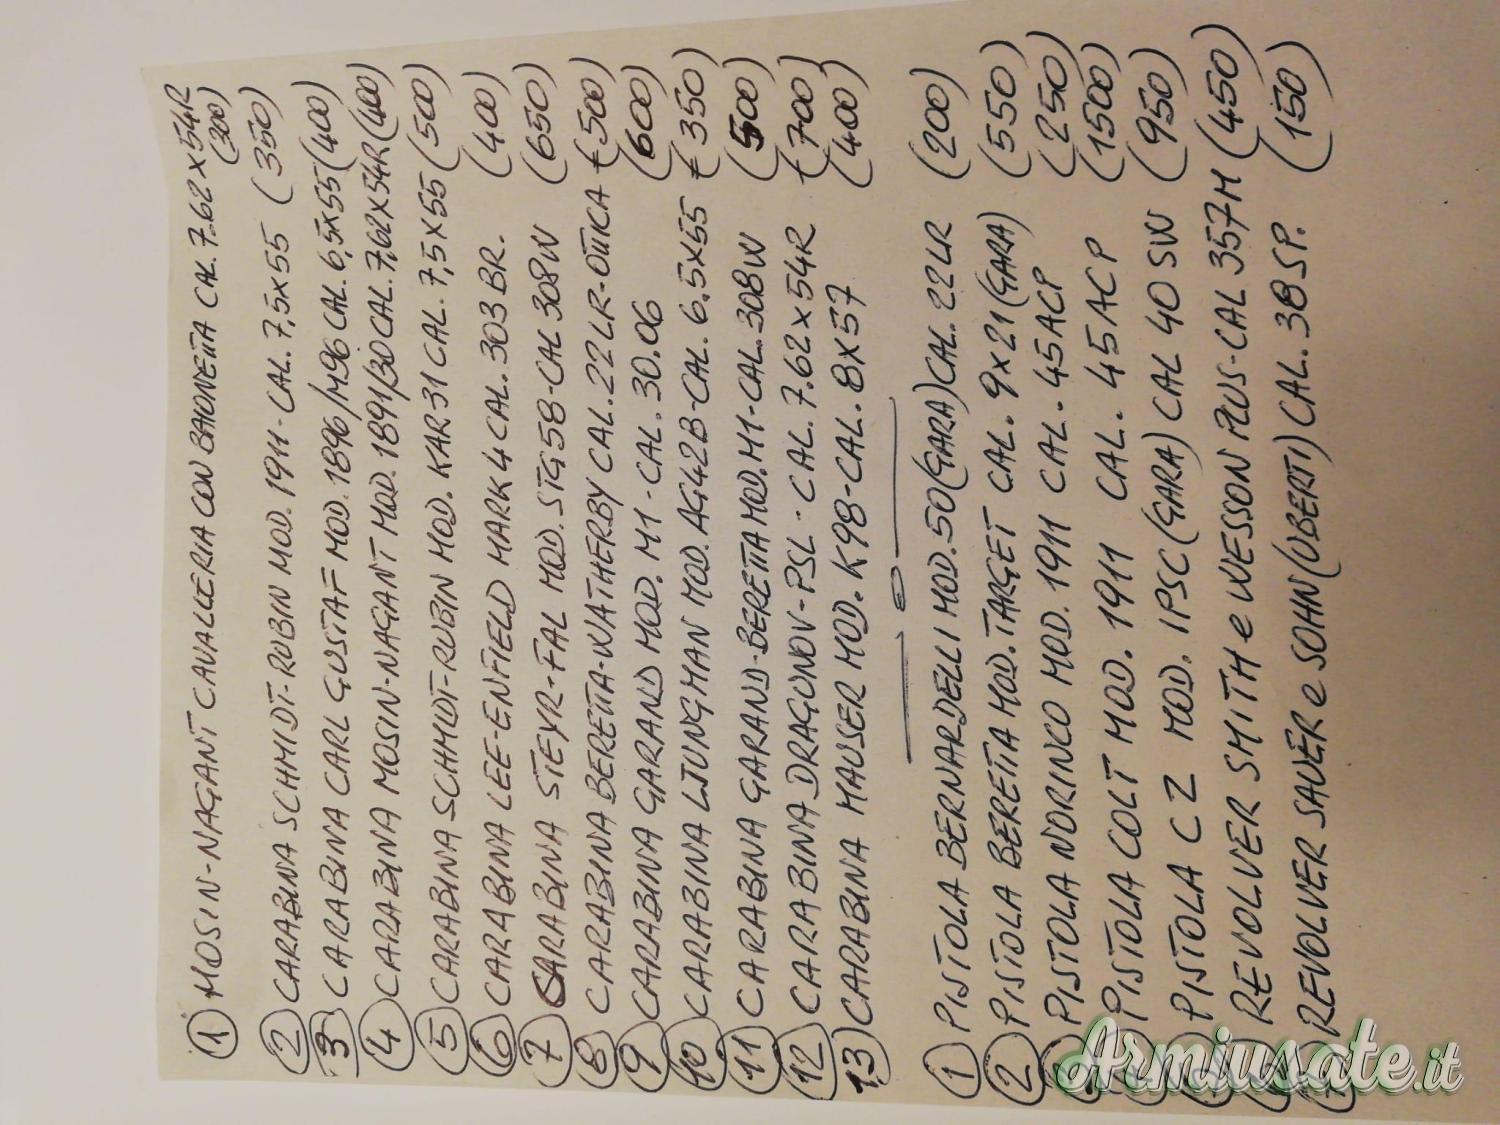 ① MOSIN-NAGANT CAVALLERIA CON BAIONETTA CAL. 7.62 X 54R
(300)
② CARABINA SCHMIDT-RUBIN MOD. 1911 - CAL. 7,5X55 (350)
③ CARABINA CARL GUSTAF MOD. 1896/M96 CAL. 6,5X55 (400)
④ CARABINA MOSIN-NAGANT MOD. 1891/30 CAL. 7,62X54R (400)
⑤ CARABINA SCHMIDT-RUBIN MOD. KAR 31 CAL. 7,5X55 (500)
⑥ CARABINA LEE-ENFIELD MARK 4 CAL. 303 BR. (400)
⑦ CARABINA STEYR-FAL MOD. STG 58 - CAL 308W (650)
⑧ CARABINA BERETTA-WATHERBY CAL. 22 LR - OTTICA (500)
⑨ CARABINA GARAND MOD. M1 - CAL. 30.06 (600)
⑩ CARABINA LJUNGMAN MOD. AG42B - CAL. 6,5X55 (350)
⑪ CARABINA GARAND-BERETTA MOD. M1 - CAL. 308W (500)
⑫ CARABINA DRAGUNOV-PSL - CAL. 7.62 X 54R (700)
⑬ CARABINA MAUSER MOD. K98 - CAL. 8X57 (400)
① PISTOLA BERNARDELLI MOD. 50 (GARA) CAL. 22 LR (200)
② PISTOLA BERETTA MOD. TARGET CAL. 9X21 (GARA) (550)
③ PISTOLA NORINCO MOD. 1911 CAL. 45 ACP (250)
④ PISTOLA COLT MOD. 1911 CAL. 45 ACP (1500)
⑤ PISTOLA CZ MOD. IPSC (GARA) CAL 40 SW (950)
⑥ REVOLVER SMITH e WESSON PLUS - CAL 357M (450)
⑦ REVOLVER SAUER e SOHN (UBERTI) CAL. 38 SP. (150)
Armiusate.it